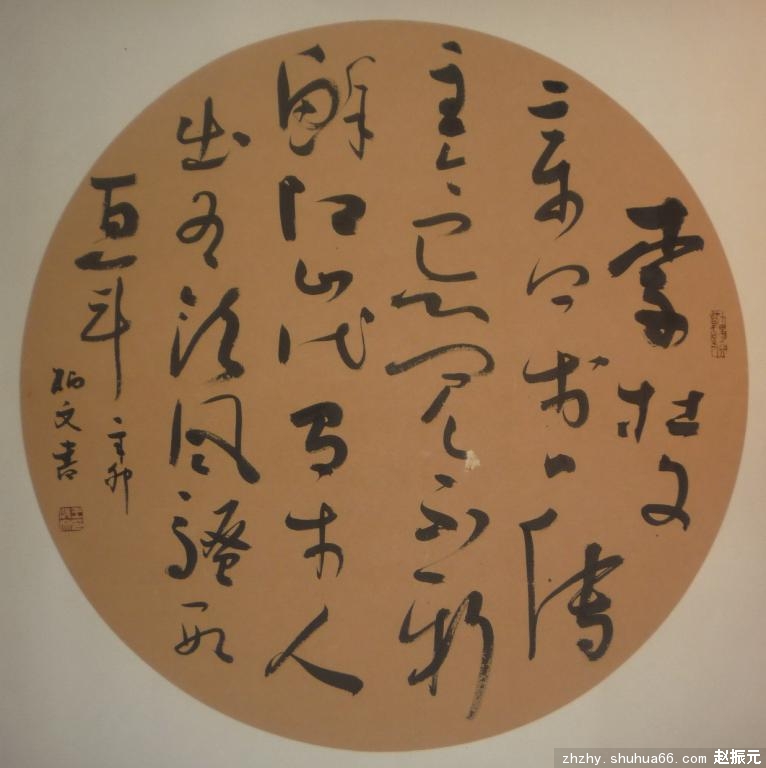 李杜文
章万口传
至今已觉不新
鲜江山代有才人
出各领风骚数
百年 辛卯
柏文书
zhzhy.shuhua66.com 赵振元